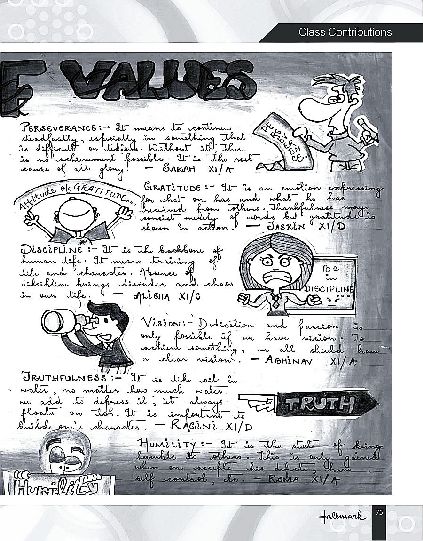 Class Contributions
F VALUES
PERSEVERANCE:- It means to continue
steadfastly especially in something that
is difficult or tedious. Without it there
is no achievement possible. It is the root
cause of all glory. - SARAH XI/A
Attitude of GRATITUDE...
GRATITUDE:- It is an emotion expressing
for what one has and what he has
received from others. Thankfulness may
consist merely of words but gratitude is
shown in action - JASKIN XI/D
DISCIPLINE:- It is the backbone of
human life. It means training of
life and character. Absence of
discipline brings disorder and chaos
in our life. - XI/
To be
in
DISCIPLINE
VISION:- Dedication and passion is
only possible if we have vision. To
achieve something, all should have
a clear vision. - ABHINAV XI/A
TRUTHFULNESS:- It is like oil in
water, no matter how much water
we add to depress it, it always
floats on top. It is important to
build one's character. - RAGINI XI/D
TRUTH
HUMILITY:- It is the state of being
humble to others. This is only gained
when one accepts his defeat, have
self control, etc. - XI/A
HUMILITY
Hallmark
75